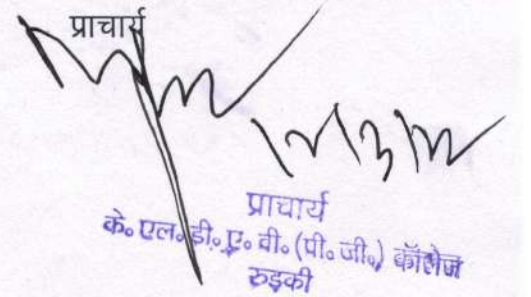 प्राचार्य
प्राचार्य
के० एल० डी० ए० वी० (पी० जी०) कॉलेज
रुड़की